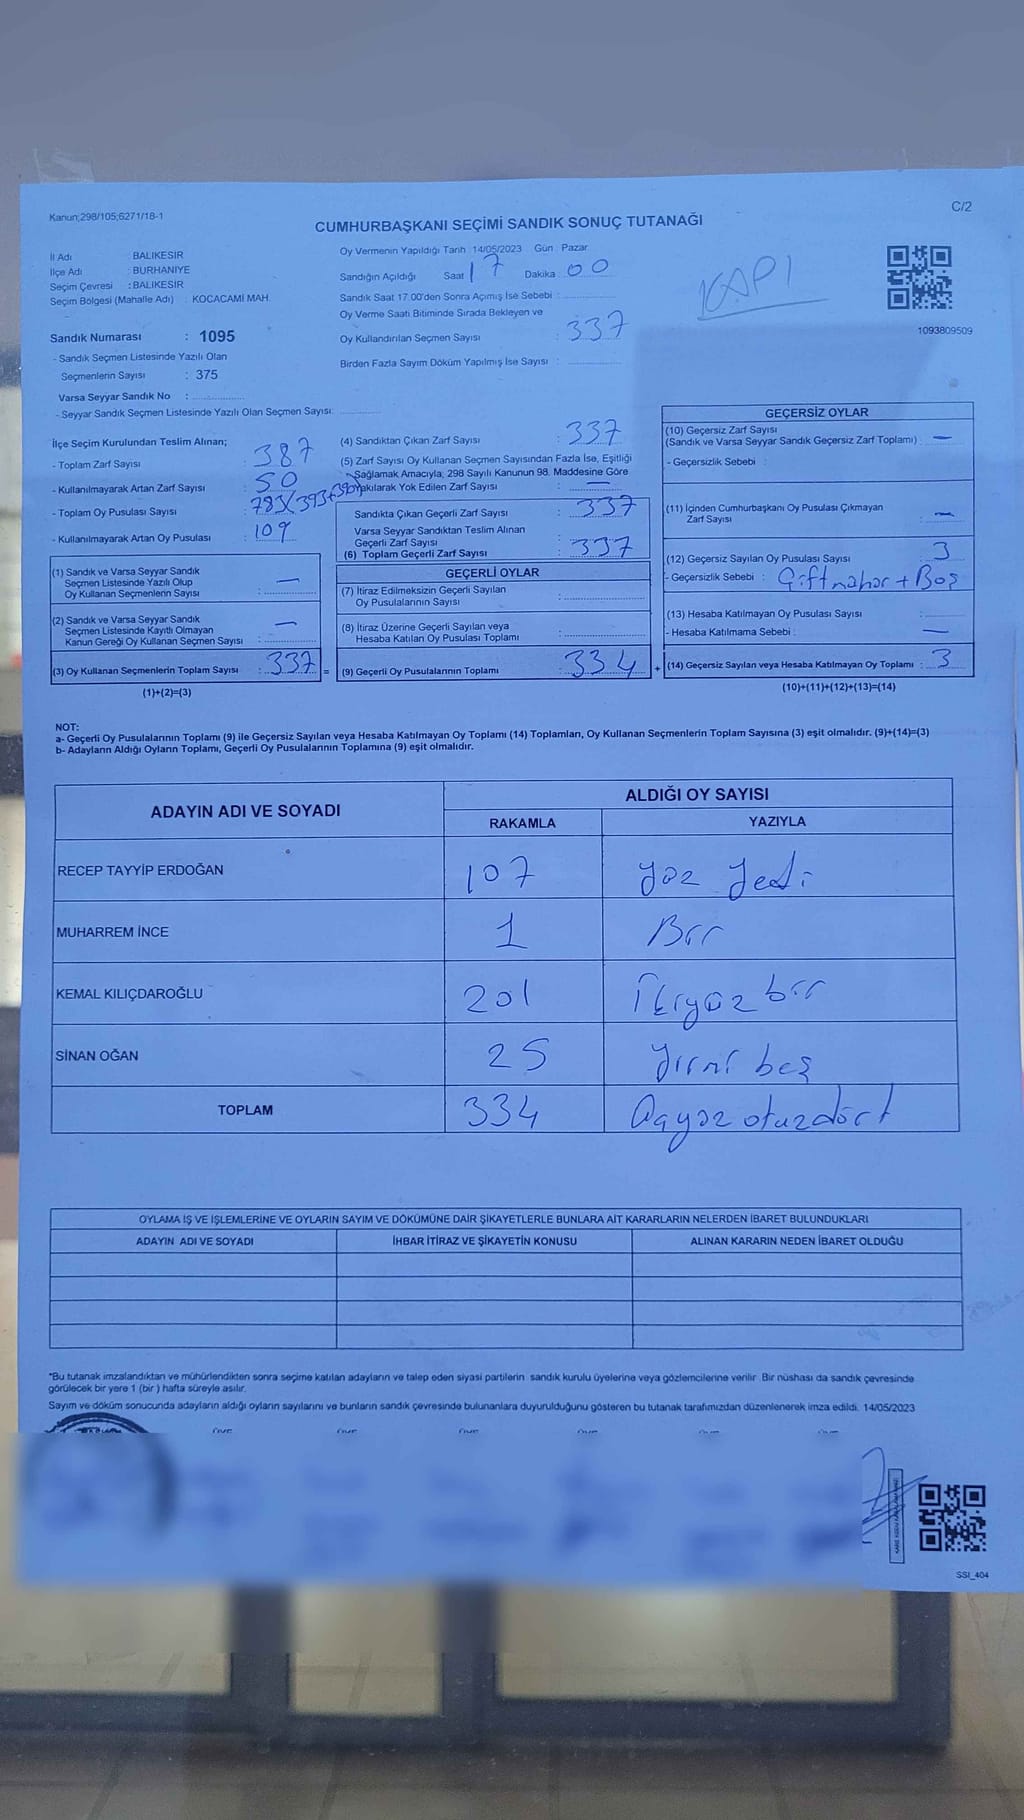 Kanun;298/105;6271/18-1
C/2
CUMHURBAŞKANI SEÇİMİ SANDIK SONUÇ TUTANAĞI
İl Adı : BALIKESİR
İlçe Adı : BURHANİYE
Seçim Çevresi : BALIKESİR
Seçim Bölgesi (Mahalle Adı) : KOCACAMİ MAH.
Oy Vermenin Yapıldığı Tarih 14/05/2023 Gün : Pazar
Sandığın Açıldığı Saat 17 Dakika 00
Sandık Saat 17.00'den Sonra Açımış İse Sebebi :
Oy Verme Saati Bitiminde Sırada Bekleyen ve
Oy Kullandırılan Seçmen Sayısı : 337
Birden Fazla Sayım Döküm Yapılmış İse Sayısı :
KAPI
1093809509
Sandık Numarası : 1095
- Sandık Seçmen Listesinde Yazılı Olan
Seçmenlerin Sayısı : 375
Varsa Seyyar Sandık No :
- Seyyar Sandık Seçmen Listesinde Yazılı Olan Seçmen Sayısı:
İlçe Seçim Kurulundan Teslim Alınan;
- Toplam Zarf Sayısı : 387
- Kullanılmayarak Artan Zarf Sayısı : 50
- Toplam Oy Pusulası Sayısı : 783 (393+390)
- Kullanılmayarak Artan Oy Pusulası : 109
(1) Sandık ve Varsa Seyyar Sandık
Seçmen Listesinde Yazılı Olup
Oy Kullanan Seçmenlerin Sayısı : —
(2) Sandık ve Varsa Seyyar Sandık
Seçmen Listesinde Kayıtlı Olmayan
Kanun Gereği Oy Kullanan Seçmen Sayısı : —
(3) Oy Kullanan Seçmenlerin Toplam Sayısı : 337 =
(1)+(2)=(3)
(4) Sandıktan Çıkan Zarf Sayısı : 337
(5) Zarf Sayısı Oy Kullanan Seçmen Sayısından Fazla İse, Eşitliği
Sağlamak Amacıyla; 298 Sayılı Kanunun 98. Maddesine Göre
Yakılarak Yok Edilen Zarf Sayısı : —
Sandıkta Çıkan Geçerli Zarf Sayısı : 337
Varsa Seyyar Sandıktan Teslim Alınan
Geçerli Zarf Sayısı
(6) Toplam Geçerli Zarf Sayısı : 337
GEÇERLİ OYLAR
(7) İtiraz Edilmeksizin Geçerli Sayılan
Oy Pusulalarının Sayısı :
(8) İtiraz Üzerine Geçerli Sayılan veya
Hesaba Katılan Oy Pusulası Toplamı :
(9) Geçerli Oy Pusulalarının Toplamı : 334 +
GEÇERSİZ OYLAR
(10) Geçersiz Zarf Sayısı
(Sandık ve Varsa Seyyar Sandık Geçersiz Zarf Toplamı) : —
- Geçersizlik Sebebi :
(11) İçinden Cumhurbaşkanı Oy Pusulası Çıkmayan
Zarf Sayısı : —
(12) Geçersiz Sayılan Oy Pusulası Sayısı : 3
- Geçersizlik Sebebi : Çift mühür + Boş
(13) Hesaba Katılmayan Oy Pusulası Sayısı :
- Hesaba Katılmama Sebebi : —
(14) Geçersiz Sayılan veya Hesaba Katılmayan Oy Toplamı : 3
(10)+(11)+(12)+(13)=(14)
NOT:
a- Geçerli Oy Pusulalarının Toplamı (9) ile Geçersiz Sayılan veya Hesaba Katılmayan Oy Toplamı (14) Toplamları, Oy Kullanan Seçmenlerin Toplam Sayısına (3) eşit olmalıdır. (9)+(14)=(3)
b- Adayların Aldığı Oyların Toplamı, Geçerli Oy Pusulalarının Toplamına (9) eşit olmalıdır.
ADAYIN ADI VE SOYADI
ALDIĞI OY SAYISI
RAKAMLA YAZIYLA
RECEP TAYYİP ERDOĞAN 107 yüz yedi
MUHARREM İNCE 1 Bir
KEMAL KILIÇDAROĞLU 201 İkiyüz bir
SİNAN OĞAN 25 yirmi beş
TOPLAM 334 Üçyüz otuzdört
OYLAMA İŞ VE İŞLEMLERİNE VE OYLARIN SAYIM VE DÖKÜMÜNE DAİR ŞİKAYETLERLE BUNLARA AİT KARARLARIN NELERDEN İBARET BULUNDUKLARI
ADAYIN ADI VE SOYADI İHBAR İTİRAZ VE ŞİKAYETİN KONUSU ALINAN KARARIN NEDEN İBARET OLDUĞU
*Bu tutanak imzalandıktan ve mühürlendikten sonra seçime katılan adayların ve talep eden siyasi partilerin sandık kurulu üyelerine veya gözlemcilerine verilir. Bir nüshası da sandık çevresinde
görülecek bir yere 1 (bir ) hafta süreyle asılır.
Sayım ve döküm sonucunda adayların aldığı oyların sayılarını ve bunların sandık çevresinde bulunanlara duyurulduğunu gösteren bu tutanak tarafımızdan düzenlenerek imza edildi. 14/05/2023
SSI_404